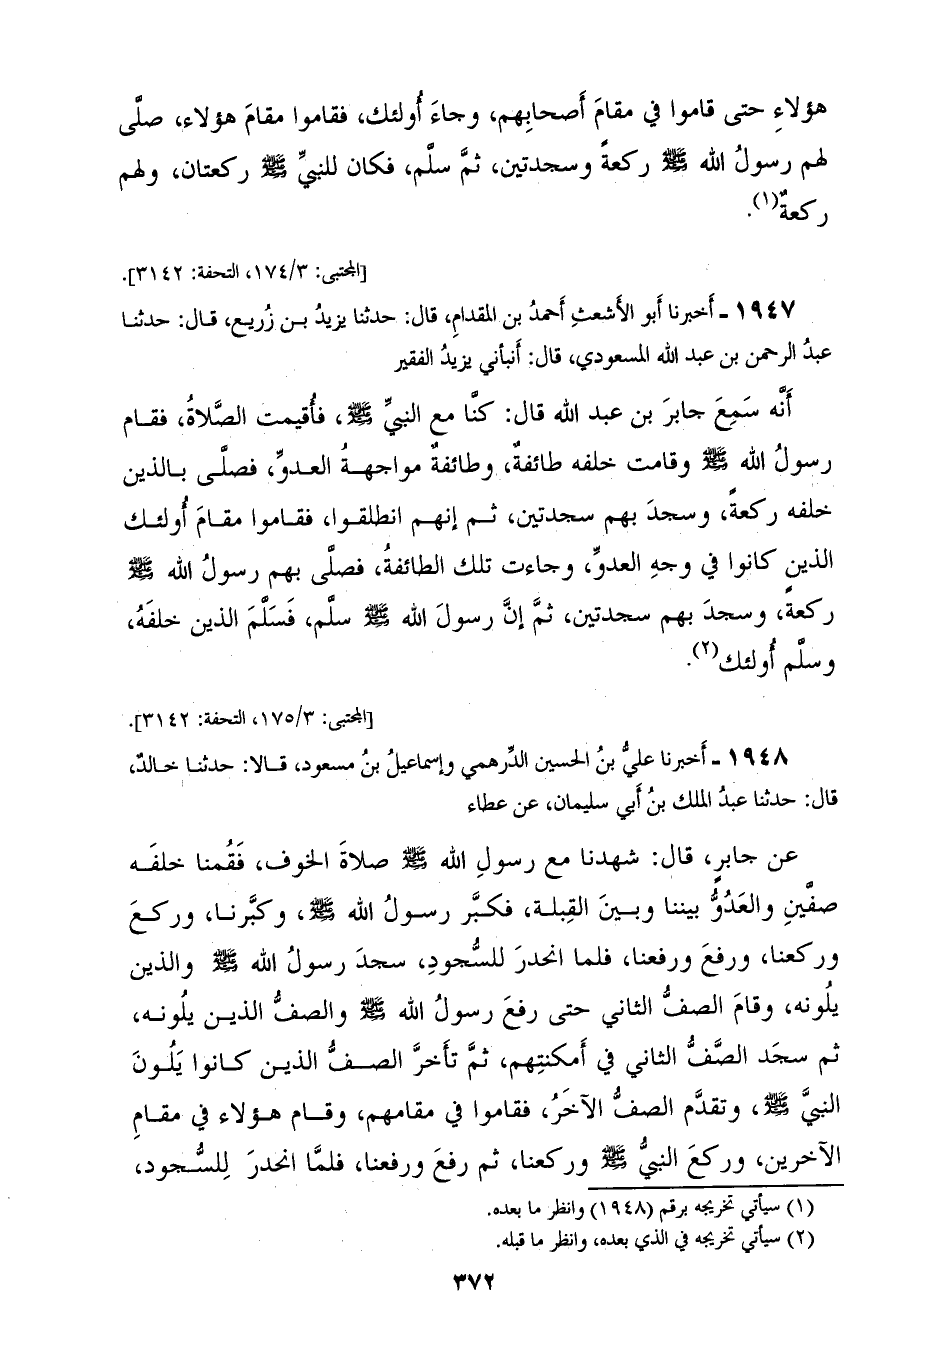 هؤلاءِ حتى قاموا في مقامَ أصحابِهم، وجاءَ أُولئك، فقاموا مقامَ هؤلاء، صلَّى
لهم رسولُ الله ﷺ ركعةً وسجدتين، ثمَّ سلَّم، فكان للنبيِّ ﷺ ركعتان، ولهم
ركعةٌ(١).
[المجتبى: ١٧٤/٣، التحفة: ٣١٤٢].
١٩٤٧ ـ أخبرنا أبو الأشعثِ أحمدُ بن المقدامِ، قال: حدثنا يزيدُ بـن زُريع، قـال: حدثنـا
عبدُ الرحمن بن عبد الله المسعودي، قال: أنبأني يزيدُ الفقير
أنَّه سَمِعَ جابرَ بن عبد الله قال: كنَّا مع النبيِّ ﷺ، فأُقيمت الصَّلاةُ، فقـام
رسولُ الله ﷺ وقامت خلفه طائفةٌ، وطائفةٌ مواجهـةُ العـدوِّ، فصلَّـى بـالذين
خلفه ركعةً، وسـجدَ بهـم سـجدتين، ثـم إنهـم انطلقـوا، فقـاموا مقـامَ أُولئـك
الذين كانوا في وجهِ العدوِّ، وجاءت تلك الطائفةُ، فصلَّى بهم رسولُ الله ﷺ
ركعةً، وسجدَ بهم سجدتين، ثمَّ إنَّ رسولَ الله ﷺ سلَّم، فَسَلَّمَ الذين خلفَهُ،
وسلَّم أُولئك(٢).
[المجتبى: ١٧٥/٣، التحفة: ٣١٤٢].
١٩٤٨ ـ أخبرنا عليُّ بنُ الحسين الدِّرهمي وإسماعيلُ بنُ مسعود، قـالا: حدثنـا خـالدٌ،
قال: حدثنا عبدُ الملك بنُ أبي سليمان، عن عطاء
عن جابرٍ، قال: شهدنا مع رسولِ الله ﷺ صلاةَ الخوف، فَقُمنا خلفَـه
صفَّينِ والعَدُوُّ بيننا وبـينَ القِبلـة، فكـبَّر رسـولُ الله ﷺ، وكبَّرنـا، وركـعَ
وركعنا، ورفعَ ورفعنا، فلما انحدرَ للسُّجودِ، سجدَ رسولُ الله ﷺ والذين
يلُونه، وقامَ الصفُّ الثاني حتى رفعَ رسولُ الله ﷺ والصفُّ الذيـن يلُونـه،
ثم سجَد الصَّفُّ الثاني في أمكنتِهم، ثمَّ تأخرَّ الصـفُّ الذيـن كـانوا يَلُونَ
النبيَّ ﷺ، وتقدَّم الصفُّ الآخَرُ، فقاموا في مقامهم، وقـام هـؤلاء في مقـامِ
الآخرين، وركعَ النبيُّ ﷺ وركعنا، ثم رفعَ ورفعنا، فلمَّا انحدرَ لِلسُّـجود،
(١) سيأتي تخريجه برقم (١٩٤٨) وانظر ما بعده.
(٢) سيأتي تخريجه في الذي بعده، وانظر ما قبله.
٣٧٢